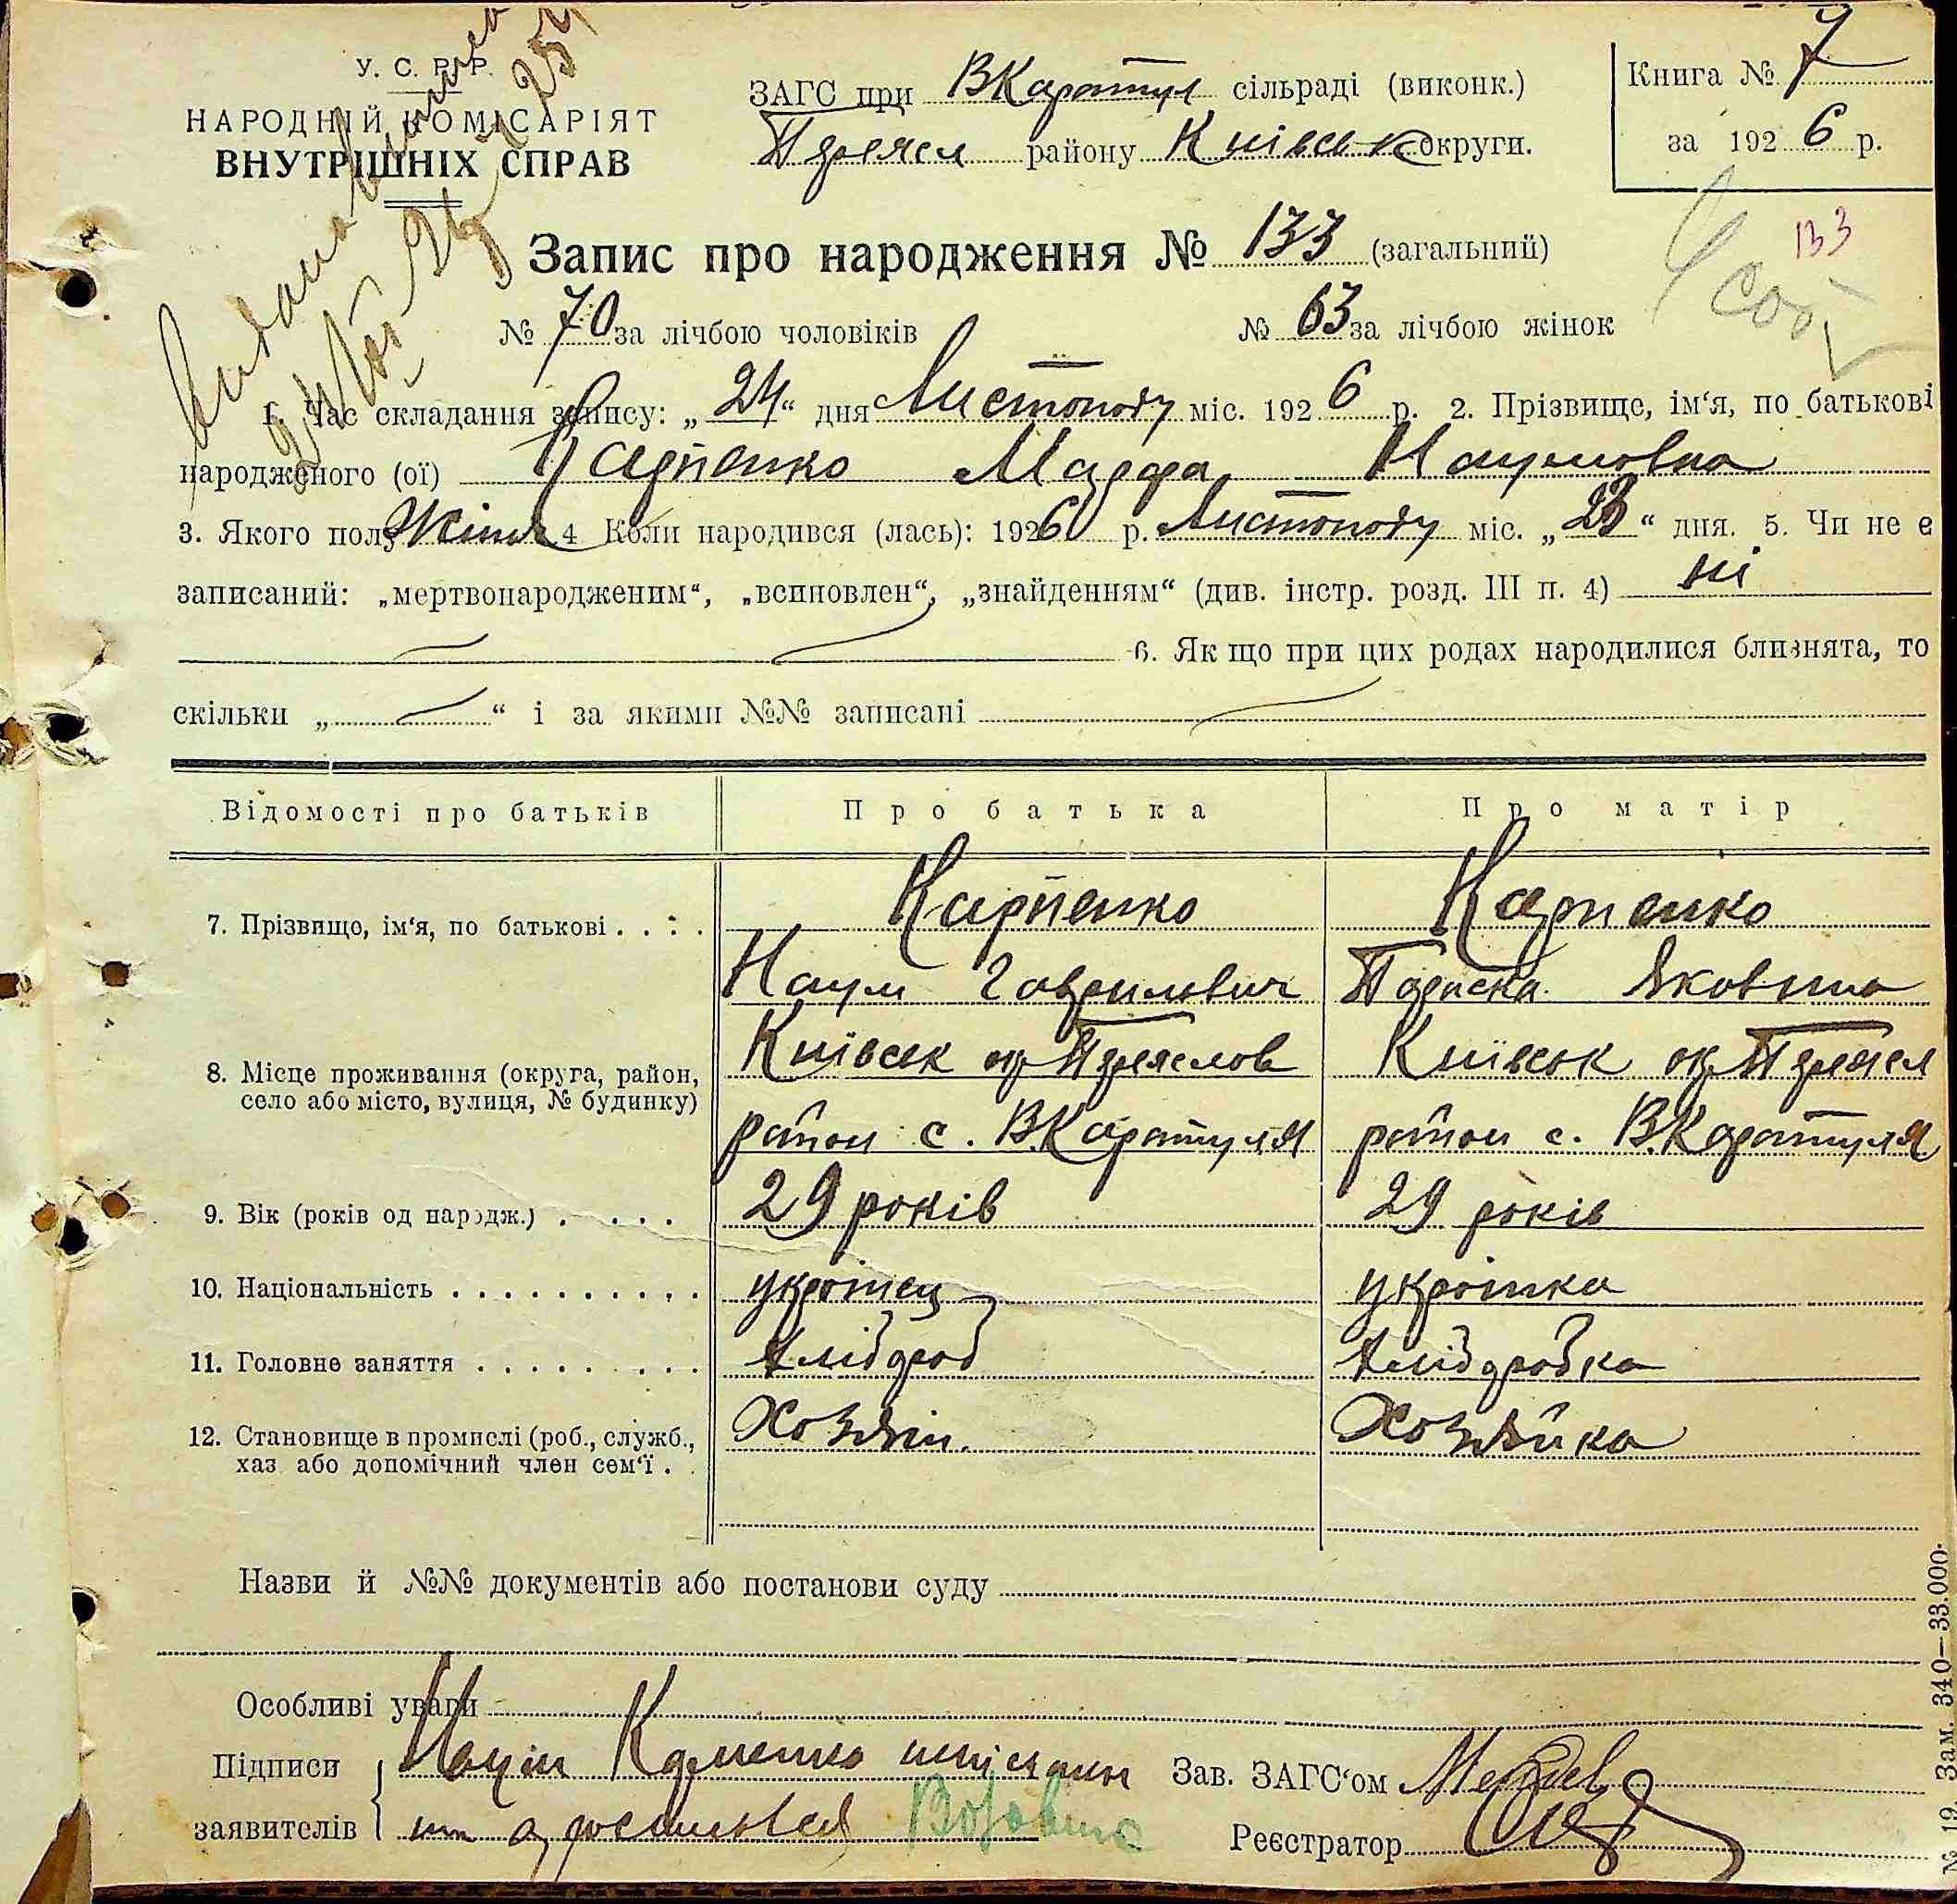 У. С. Р. Р.
НАРОДНІЙ КОМІСАРІЯТ
ВНУТРІШНІХ СПРАВ
ЗАГС при ВКаратул сільраді (виконк.)
Переясл району Київськ округи.
Книга № 7
за 1926 р.
Запис про народження № 133 (загальний)
133
№ 70 за лічбою чоловіків № 63 за лічбою жінок
1. Час складання запису: „24“ дня Листоподу міс. 1926 р. 2. Прізвище, ім‘я, по батькові
народженого (ої) Карпенко Марфа Наумовна
3. Якого полу Жіноч 4 Коли народився (лась): 1926 р. Листоподу міс. „23“ дня. 5. Чи не є
записаний: „мертвонародженим“, „всиновлен“, „знайденням“ (див. інстр. розд. III п. 4) ні
6. Як що при цих родах народилися близнята, то
скільки „ “ і за якими №№ записані
Відомості про батьків Про батька Про матір
7. Прізвище, ім‘я, по батькові . . . . Карпенко Карпенко
Наум Гаврилович Параска Яковина
8. Місце проживання (округа, район, Київськ ок Переяслов Київськ ок Переясл
село або місто, вулиця, № будинку) район с. ВКаратуля район с. ВКаратуля
9. Вік (років од народж.) . . . . 29 років 29 років
10. Національність . . . . . . . . . . українец українка
11. Головне заняття . . . . . . . . . хлібороб хліборобка
12. Становище в промислі (роб., служб., Хозяін. Хозяйка
хаз. або допомічний член сем‘ї . .
Назви й №№ документів або постанови суду
Особливі уваги
Підписи Наум Карпенко
заявителів
Зав. ЗАГС‘ом
Реєстратор
№ 19. Зам. 340—33.000.